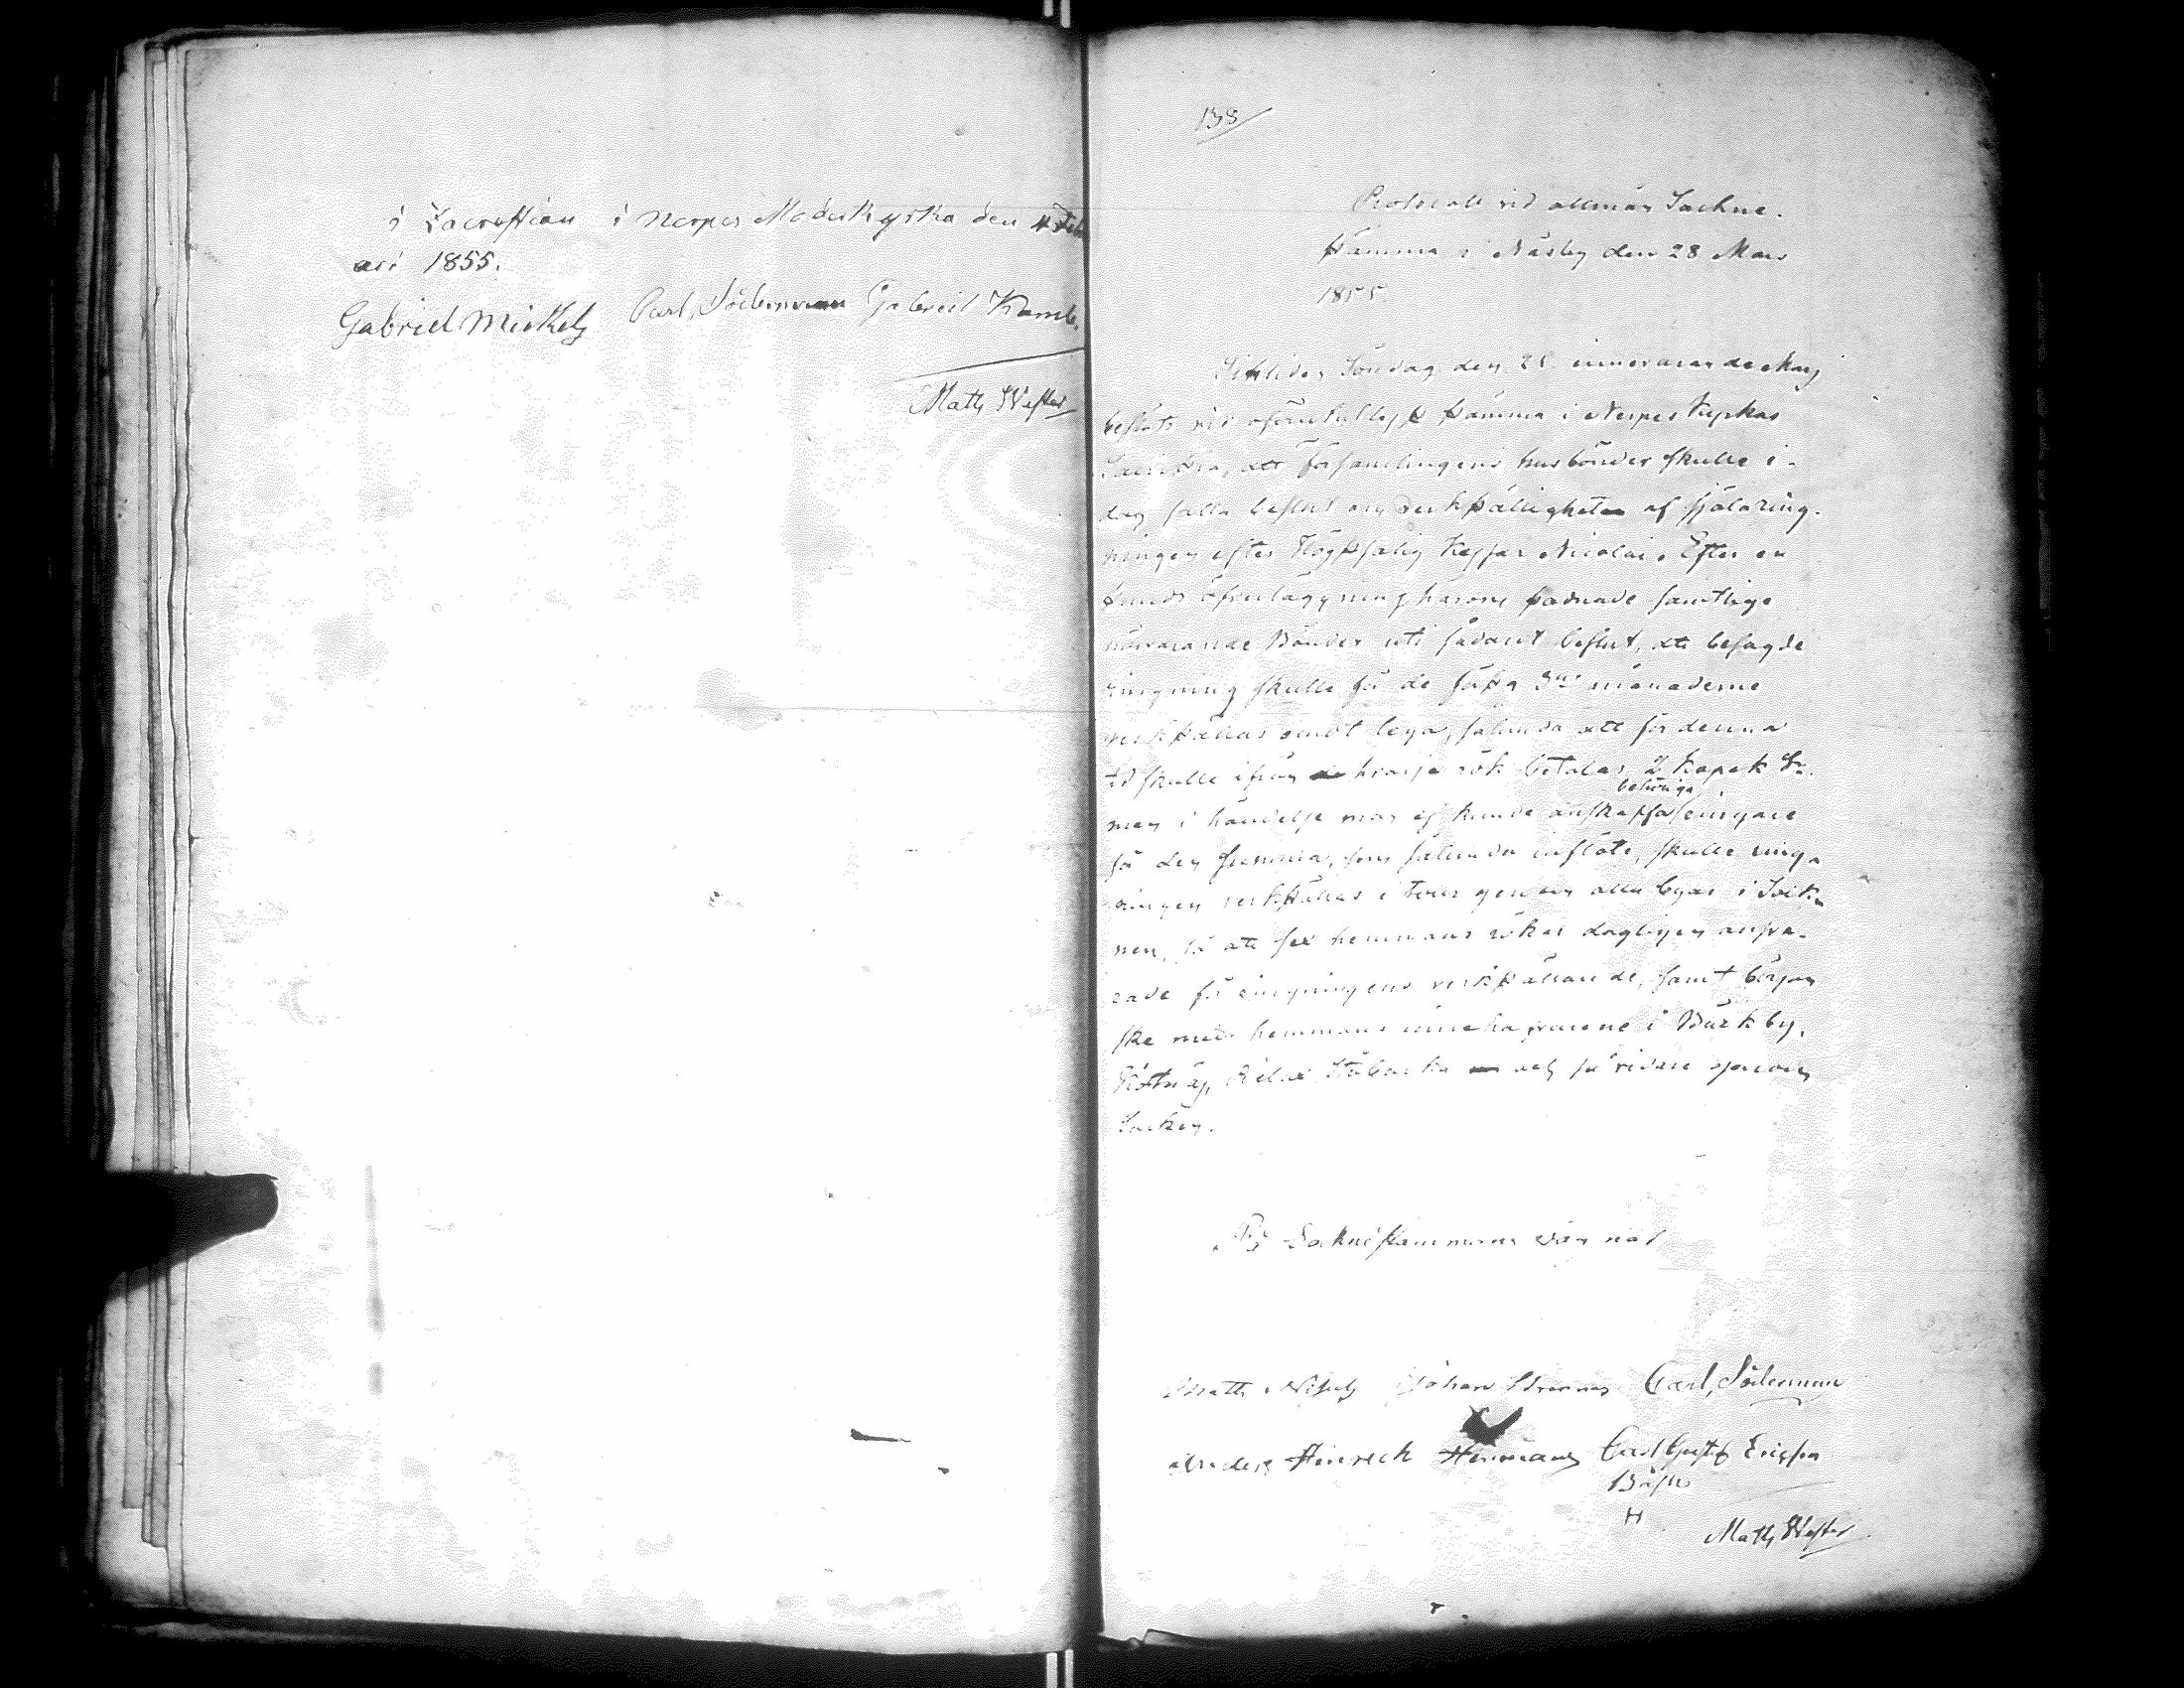 i Sacrestian i Nerpes Moderkyrka den 4 Febr
ari 1855.
Gabriel Mickels Carl Söderman Gabriel Kamb.
Matts Wester
138
Protocoll vid allmän Sockne-
stämma i Näsby den 28 Mars
1855
Söndag den 25 innevarande Mars
beslöts vid stämma i Nerpes Kyrkas
Sacristia, att församlingens husbönder skulle i-
dag fatta beslut om verkställigheten af själaring-
ningen efter Högstsalig Kejsar Nicolai. Efter en
stunds öfverläggning härom stadnade samtlige
närvarande Bönder uti sådant beslut, att besagde
ringning skulle för de första månaderne
verkställas emot lega, sålunda att för denna
tid skulle ifrån hvarje rök betalas 2 Kopek Sr.
behöriga
men i händelse man ej kunde anskaffa ringare
för den summa, som sålunda inflöte, skulle ring-
ningen verkställas i tour genom alla byar i Sock-
nen, så att sex hemmans rökar dagligen ansva-
rade för ringningens verkställande, samt början
ske med hemmans innehafvarene i Bäckby,
och så vidare genom
Socken.
På Sockne stämmans vägnar
Matts Johan Carl Söderman
Anders Hinrich Hermans Carl Gustaf Ericsson
H
Matts Wester